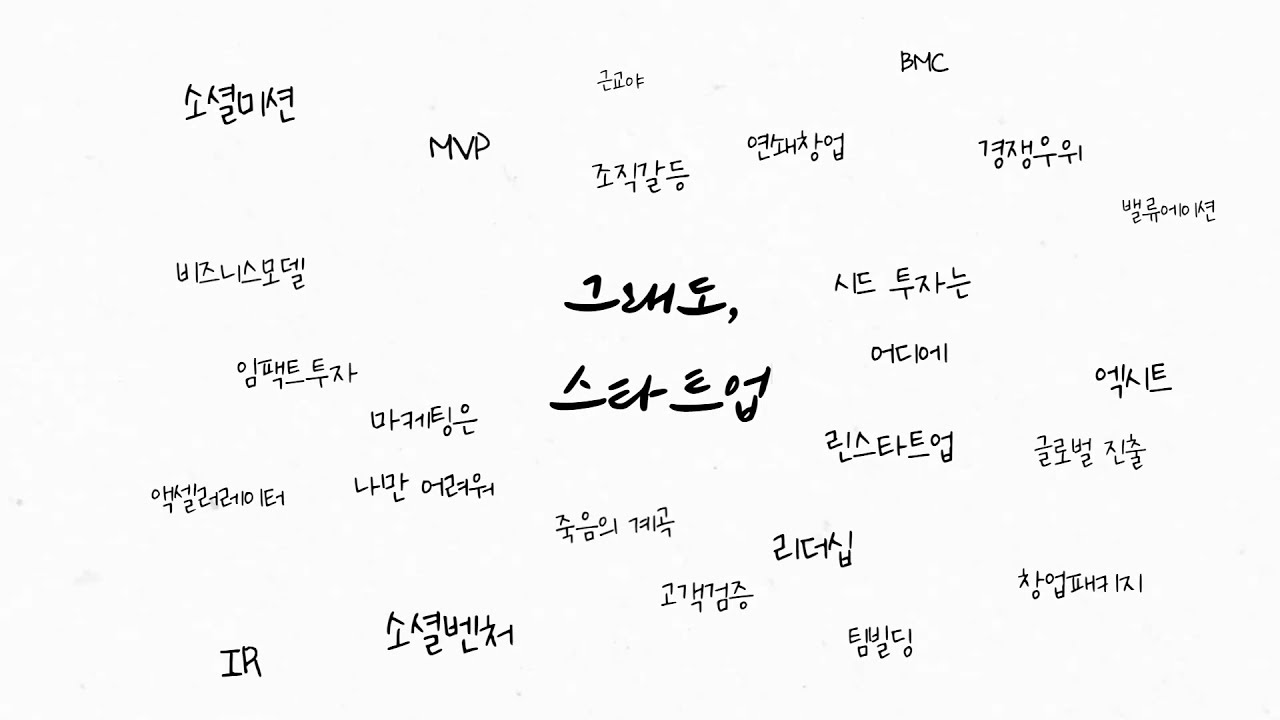 BMC
근교야
소셜미션
MVP
연쇄창업
경쟁우위
조직갈등
밸류에이션
비즈니스모델
그래도,
시드 투자는
어디에
임팩트투자
엑시트
스타트업
마케팅은
나만 어려워
린스타트업
글로벌 진출
액셀러레이터
죽음의 계곡
리더십
고객검증
창업패키지
소셜벤처
팀빌딩
IR